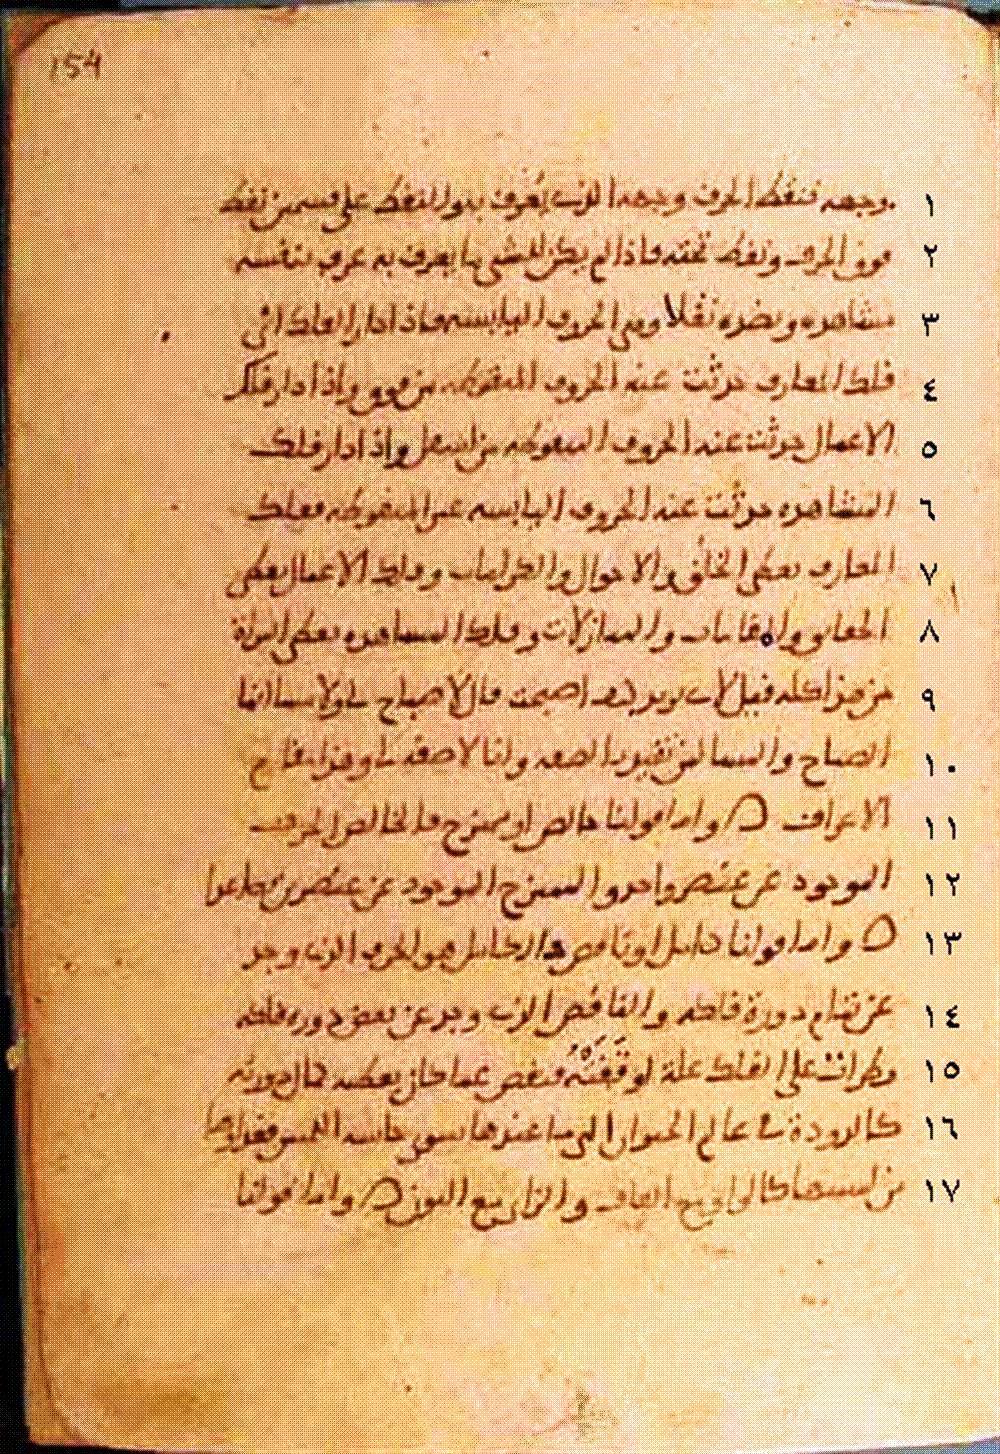 154
١ وجهه فنقط الحرف وجهه الذي يعرف به والنقط على قسمين نقط
٢ فوق الحرف ونقط تحته فاذا لم يكن للشي ما يعرف به عرف بنفسه
٣ مشاهدة وبضده نقلا وهي الحروف اليابسة فاذا دار الفلك اي
٤ فلك المعارف حدثت عنه الحروف المنقوطه من فوق واذا دار فلك
٥ الاعمال حدثت عنه الحروف المنقوطه من اسفل واذا دار فلك
٦ المشاهدة حدثت عنه الحروف اليابسه غير المنقوطه ففلك
٧ المعارف يعطي الخلق والاحوال والكرامات وفلك الاعمال يعطي
٨ الحقايق والمقامات والمنازلات وفلك المشاهده يعطي البراة
٩ من هذا كله قيل لابي يزيد كيف اصبحت قال لا صباح لي ولا مسا انما
١٠ الصباح والمسا لمن تقيد بالصفه وانا لا صفه لي وهذا مقام
١١ الاعراف واما قولنا خالص او ممتزج فالخالص الحرف
١٢ الموجود عن عنصر واحد والممتزج الموجود عن عنصرين فصاعدا
١٣ واما قولنا كامل او ناقص فالكامل هو الحرف الذي وجد
١٤ عن تمام دورة فلكه والناقص الذي وجد عن بعض دورة فلكه
١٥ وطرات على الفلك علة اوقفته فنقص عما كان يعطيه كمال دورته
١٦ كالدودة في عالم الحيوان التي ما عندها سوى حاسه اللمس فغذاوها
١٧ من لمسها كالواو مع القاف والزاي مع النون واما قولنا